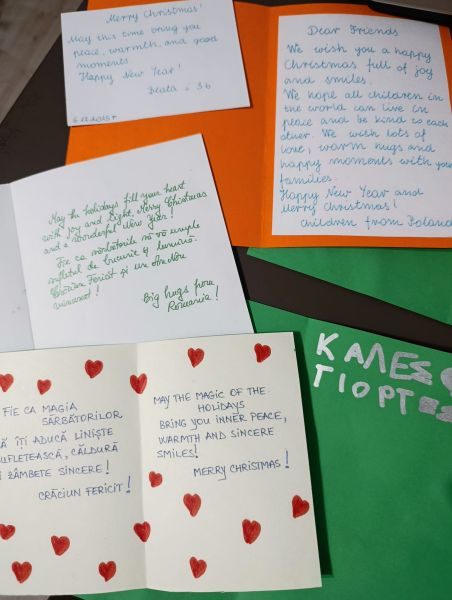 Merry Christmas!
May this time bring you
peace, warmth, and good
moments
Happy New Year!
Beata
Dear Friends
We wish you a happy
Christmas full of joy
and smiles.
We hope all children in
the world can live in
peace and be kind to each
other. We wish lots of
love, warm hugs and
happy moments with your
families.
Happy New Year and
Merry Christmas!
Children from Poland
May the holidays fill your heart
with joy and light. Merry Christmas
and a wonderful New Year!
Fie ca sărbătorile să vă umple
sufletul de bucurie și lumină.
Crăciun Fericit și un An Nou
minunat!
Big hugs from
Romania!
FIE CA MAGIA
SĂRBĂTORILOR
SĂ ÎȚI ADUCĂ LINIȘTE
SUFLETEASCĂ, CĂLDURĂ
ȘI ZÂMBETE SINCERE!
CRĂCIUN FERICIT!
MAY THE MAGIC OF THE
HOLIDAYS
BRING YOU INNER PEACE,
WARMTH AND SINCERE
SMILES!
MERRY CHRISTMAS!
ΚΑΛΕΣ
ΓΙΟΡΤ